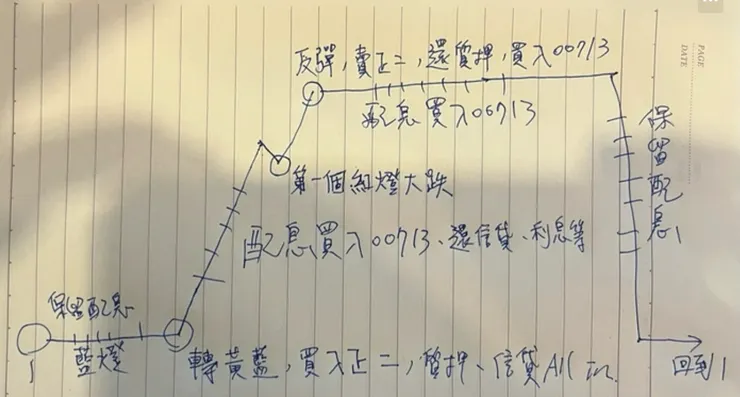 PAGE
DATE
反彈，賣正二，還質押，買入00713
配息買入00713
保留配息
第一個紅燈大跌
配息買入00713、還信貸、利息等
保留配息
藍燈
1
轉黃藍，買入正二，質押、信貸All in
回到1